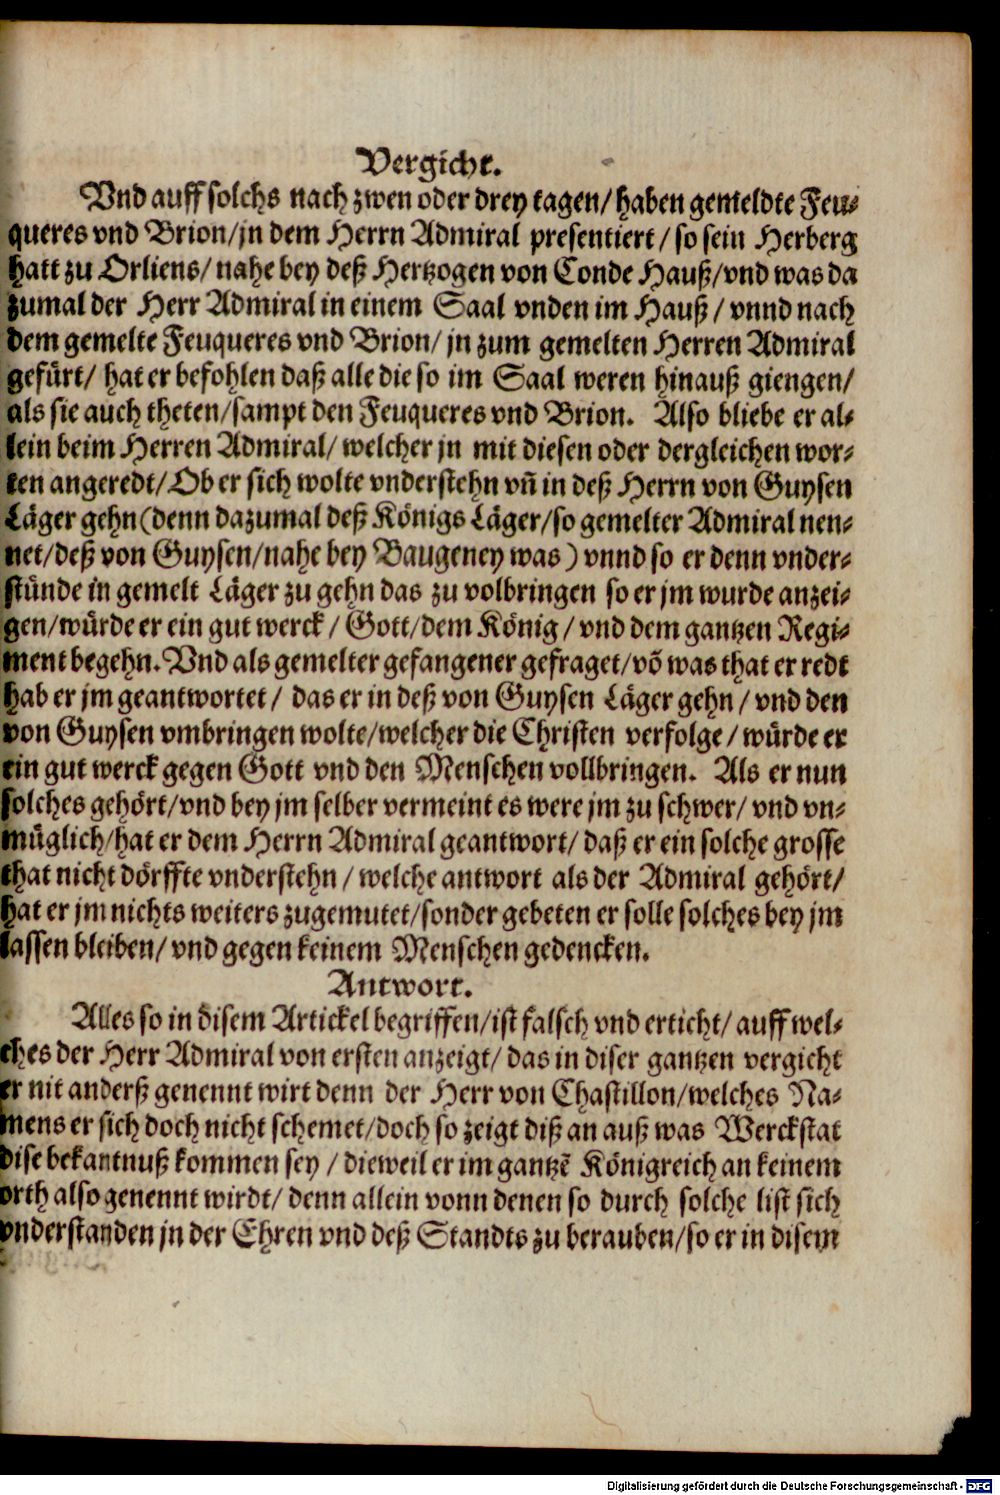 Vergicht.
Vnd auff solchs nach zwen oder drey tagen/ haben gemeldte Feu-
queres vnd Brion/jn dem Herrn Admiral presentiert/ so sein Herberg
hatt zu Orliens/ nahe bey deß Hertzogen von Conde Hauß/vnd was da
zumal der Herr Admiral in einem Saal vnden im Hauß/ vnnd nach
dem gemelte Feuqueres vnd Brion/ jn zum gemelten Herren Admiral
gefürt/ hat er befohlen daß alle die so im Saal weren hinauß giengen/
als sie auch theten/sampt den Feuqueres vnd Brion. Also bliebe er al-
lein beim Herren Admiral/ welcher jn mit diesen oder dergleichen wor-
ten angeredt/Ob er sich wolte vnderstehn vñ in deß Herrn von Guysen
Läger gehn (denn dazumal deß Königs Läger/so gemelter Admiral nen-
net/deß von Guysen/nahe bey Baugeney was) vnnd so er denn vnder-
stünde in gemelt Läger zu gehn das zu volbringen so er jm wurde anzei-
gen/würde er ein gut werck/ Gott/dem König/ vnd dem gantzen Regi-
ment begehn. Vnd als gemelter gefangener gefraget/võ was that er redt
hab er jm geantwortet/ das er in deß von Guysen Läger gehn/ vnd den
von Guysen vmbringen wolte/welcher die Christen verfolge/ würde er
ein gut werck gegen Gott vnd den Menschen vollbringen. Als er nun
solches gehört/vnd bey jm selber vermeint es were jm zu schwer/ vnd vn-
müglich/hat er dem Herrn Admiral geantwort/ daß er ein solche grosse
that nicht dörffte vnderstehn/ welche antwort als der Admiral gehört/
hat er jm nichts weiters zugemutet/sonder gebeten er solle solches bey jm
lassen bleiben/ vnd gegen keinem Menschen gedencken.
Antwort.
Alles so in disem Artickel begriffen/ist falsch vnd erticht/ auff wel-
ches der Herr Admiral von ersten anzeigt/ das in diser gantzen vergicht
er nit anderß genennt wirt denn der Herr von Chastillon/welches Na-
mens er sich doch nicht schemet/doch so zeigt diß an auß was Werckstat
dise bekantnuß kommen sey/ dieweil er im gantzẽ Königreich an keinem
orth also genennt wirdt/ denn allein vonn denen so durch solche list sich
vnderstanden jn der Ehren vnd deß Standts zu berauben/so er in disem
Digitalisierung gefördert durch die Deutsche Forschungsgemeinschaft - DFG